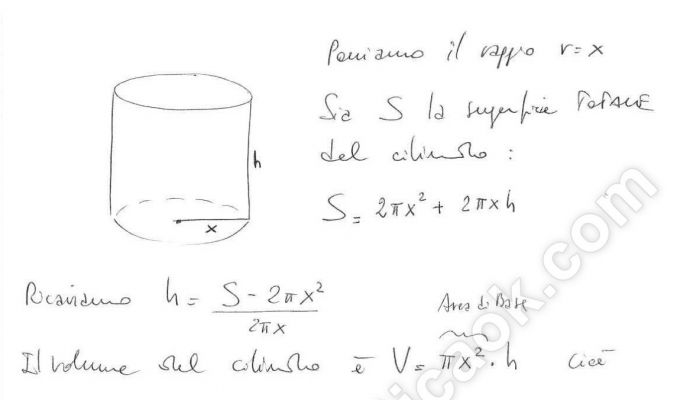 Poniamo il raggio r = x
Sia S la superficie TOTALE
del cilindro :
h
S = 2πx² + 2πxh
x
Ricaviamo h = (S - 2πx²)/(2πx)
Area di Base
Il volume del cilindro è V = πx² · h cioè
icaok.com